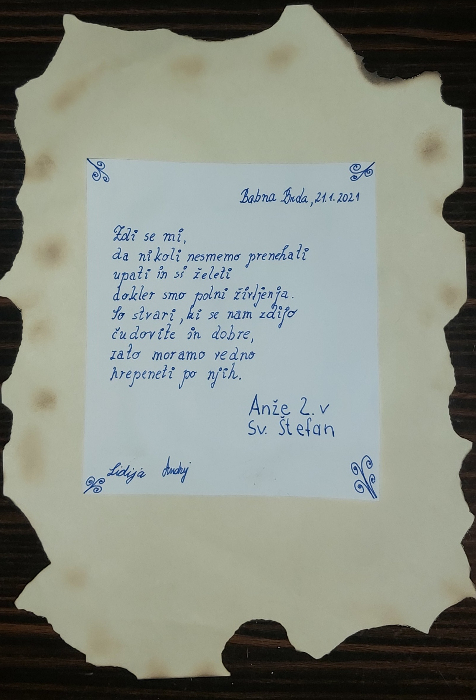 Babna Brda, 21.1.2021
Zdi se mi,
da nikoli nesmemo prenehati
upati in si želeti
dokler smo polni življenja.
So stvari, ki se nam zdijo
čudovite in dobre,
zato moramo vedno
hrepeneti po njih.
Anže 2. v
Sv. Štefan
Lidija Andrej